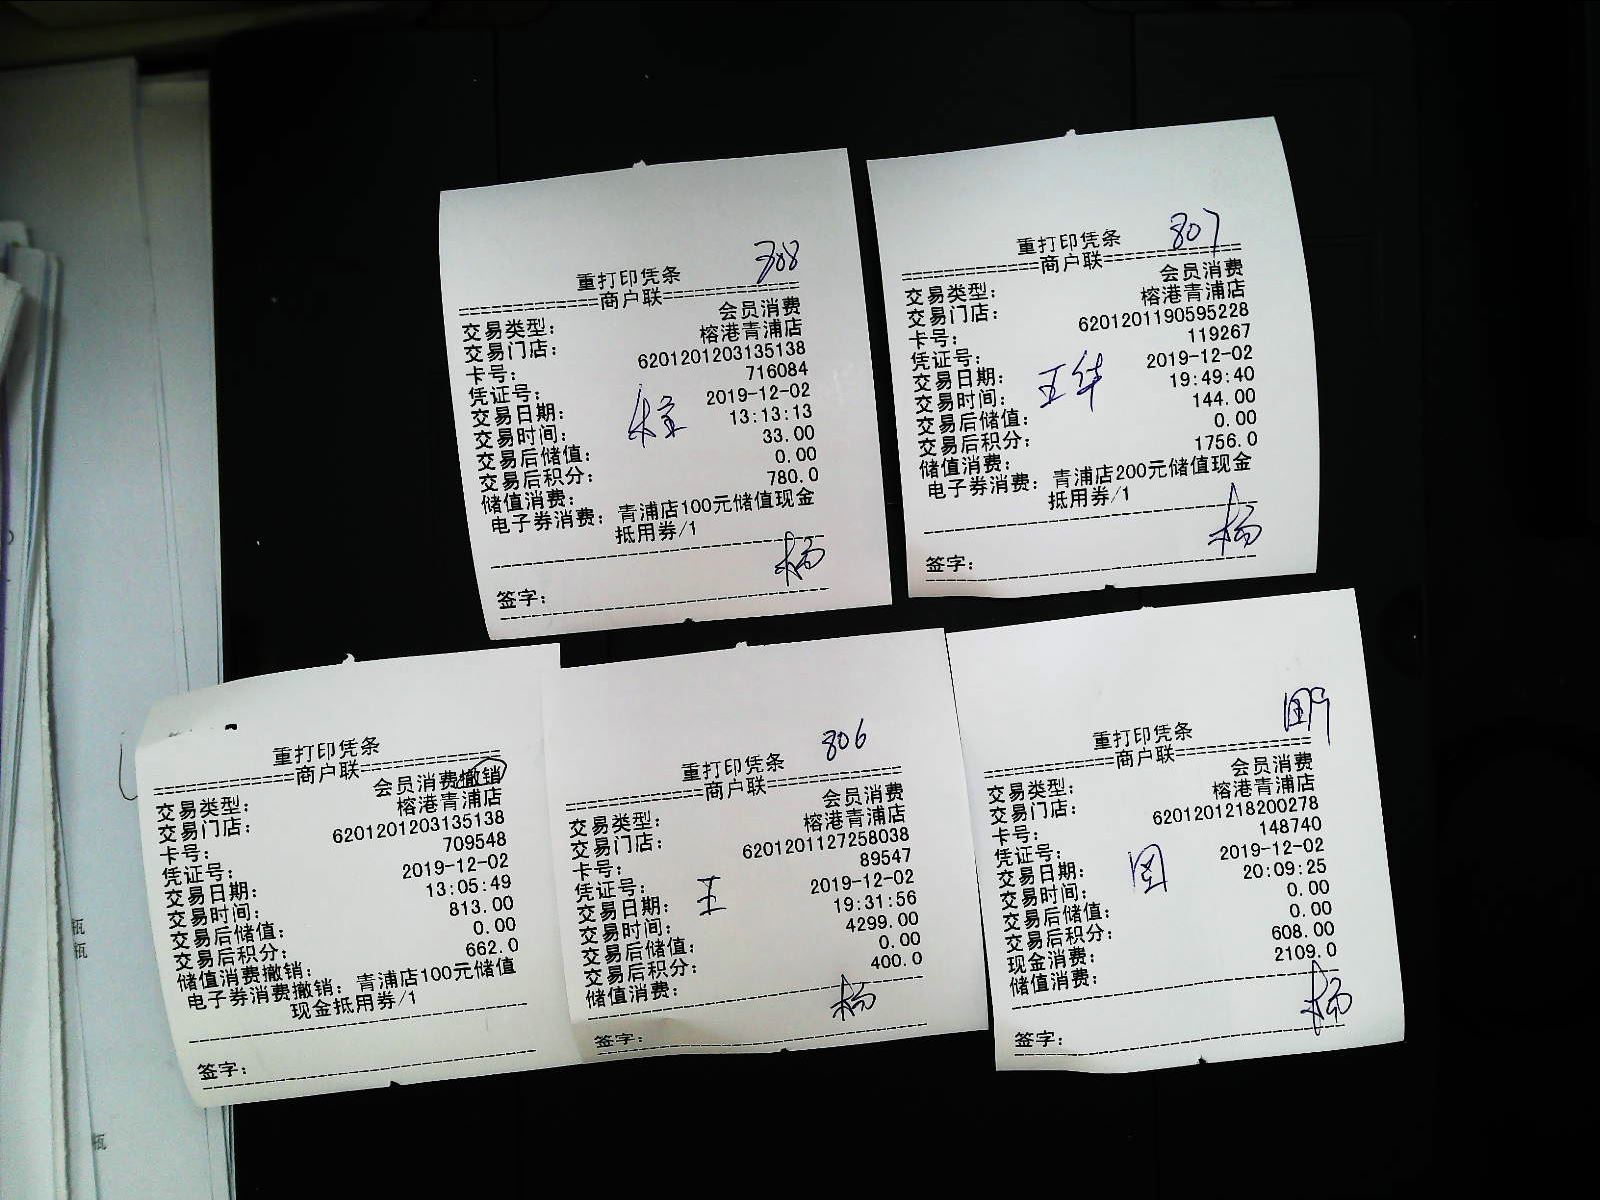 重打印凭条 708
============商户联============
交易类型: 会员消费
交易门店: 榕港青浦店
卡号: 6201201203135138
凭证号: 716084
交易日期: 2019-12-02
交易时间: 13:13:13
交易后储值: 33.00
交易后积分: 0.00
储值消费: 780.0
电子券消费: 青浦店100元储值现金
抵用券/1
杨
签字:
重打印凭条 807
============商户联============
交易类型: 会员消费
交易门店: 榕港青浦店
卡号: 6201201190595228
凭证号: 119267
交易日期: 2019-12-02
交易时间: 19:49:40
王华
交易后储值: 144.00
交易后积分: 0.00
储值消费: 1756.0
电子券消费: 青浦店200元储值现金
抵用券/1
杨
签字:
重打印凭条
============商户联============
交易类型: 会员消费撤销
交易门店: 榕港青浦店
卡号: 6201201203135138
凭证号: 709548
交易日期: 2019-12-02
交易时间: 13:05:49
交易后储值: 813.00
交易后积分: 0.00
储值消费撤销: 662.0
电子券消费撤销: 青浦店100元储值
现金抵用券/1
签字:
重打印凭条 806
============商户联============
交易类型: 会员消费
交易门店: 榕港青浦店
卡号: 6201201127258038
凭证号: 89547
交易日期: 2019-12-02
王
交易时间: 19:31:56
交易后储值: 4299.00
交易后积分: 0.00
储值消费: 400.0
杨
签字:
重打印凭条
============商户联============
交易类型: 会员消费
交易门店: 榕港青浦店
卡号: 6201201218200278
凭证号: 148740
交易日期: 2019-12-02
交易时间: 20:09:25
交易后储值: 0.00
交易后积分: 0.00
现金消费: 608.00
储值消费: 2109.0
杨
签字:
瓶
瓶
瓶